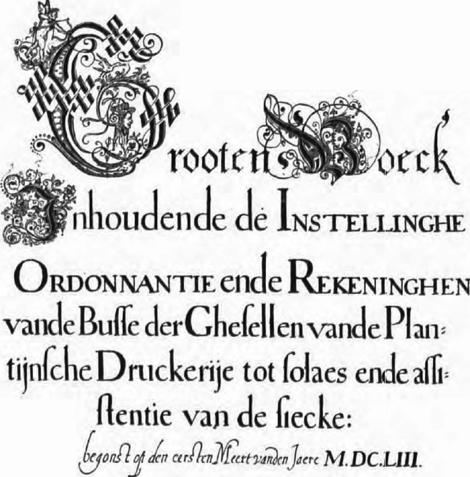 Grooten Boeck
Inhoudende de INSTELLINGHE
ORDONNANTIE ende REKENINGHEN
vande Busse der Ghesellen vande Plan=
tijnsche Druckerije tot solaes ende assi=
stentie van de siecke:
begonst op den eersten Meert vanden Jaere M.DC.LIII.